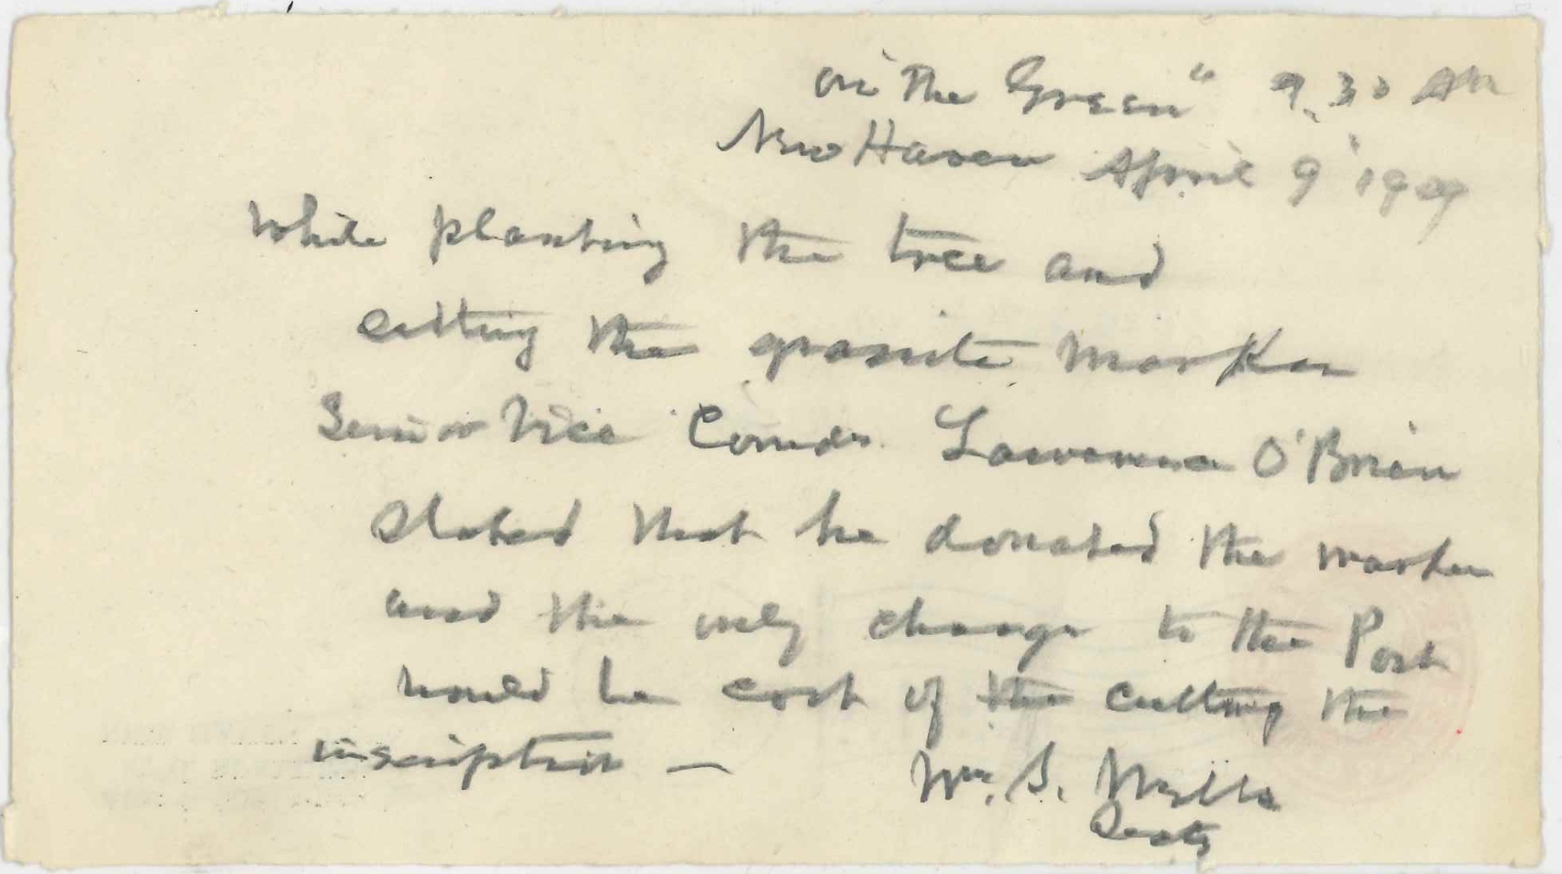 on "The Green" 9.30 AM
New Haven April 9' 1909
While planting the tree and
setting the granite marker
Senior Vice Comdr. Lawrence O'Brien
stated that he donated the marker
and the only charge to the Post
would be cost of the cutting the
inscription —
Wm. S. Wells